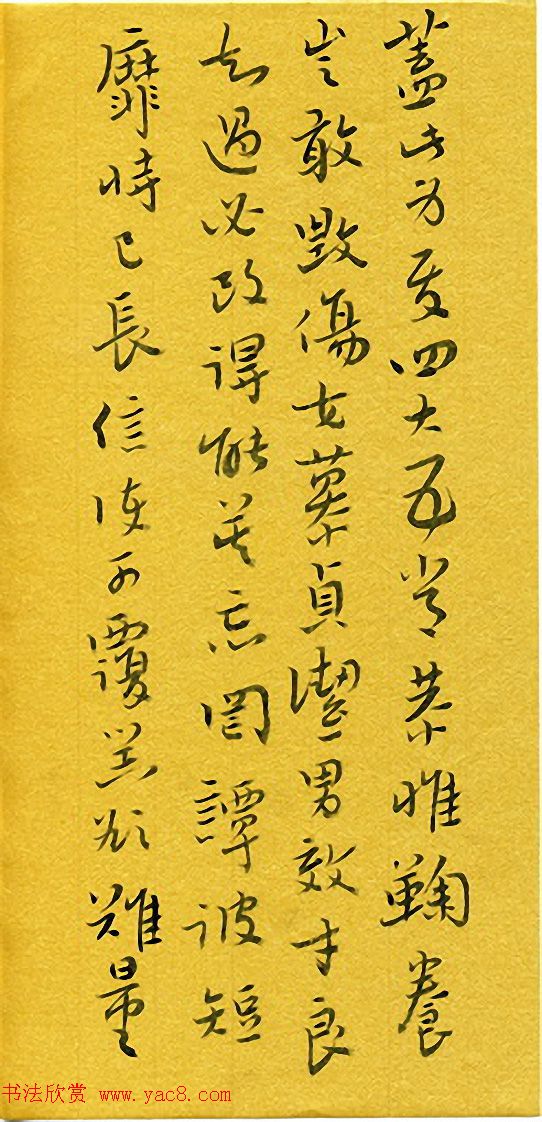 蓋此身髮四大五常恭惟鞠養
豈敢毀傷女慕貞潔男效才良
知過必改得能莫忘罔譚彼短
靡恃己長信使可覆器欲難量
书法欣赏 www.yac8.com